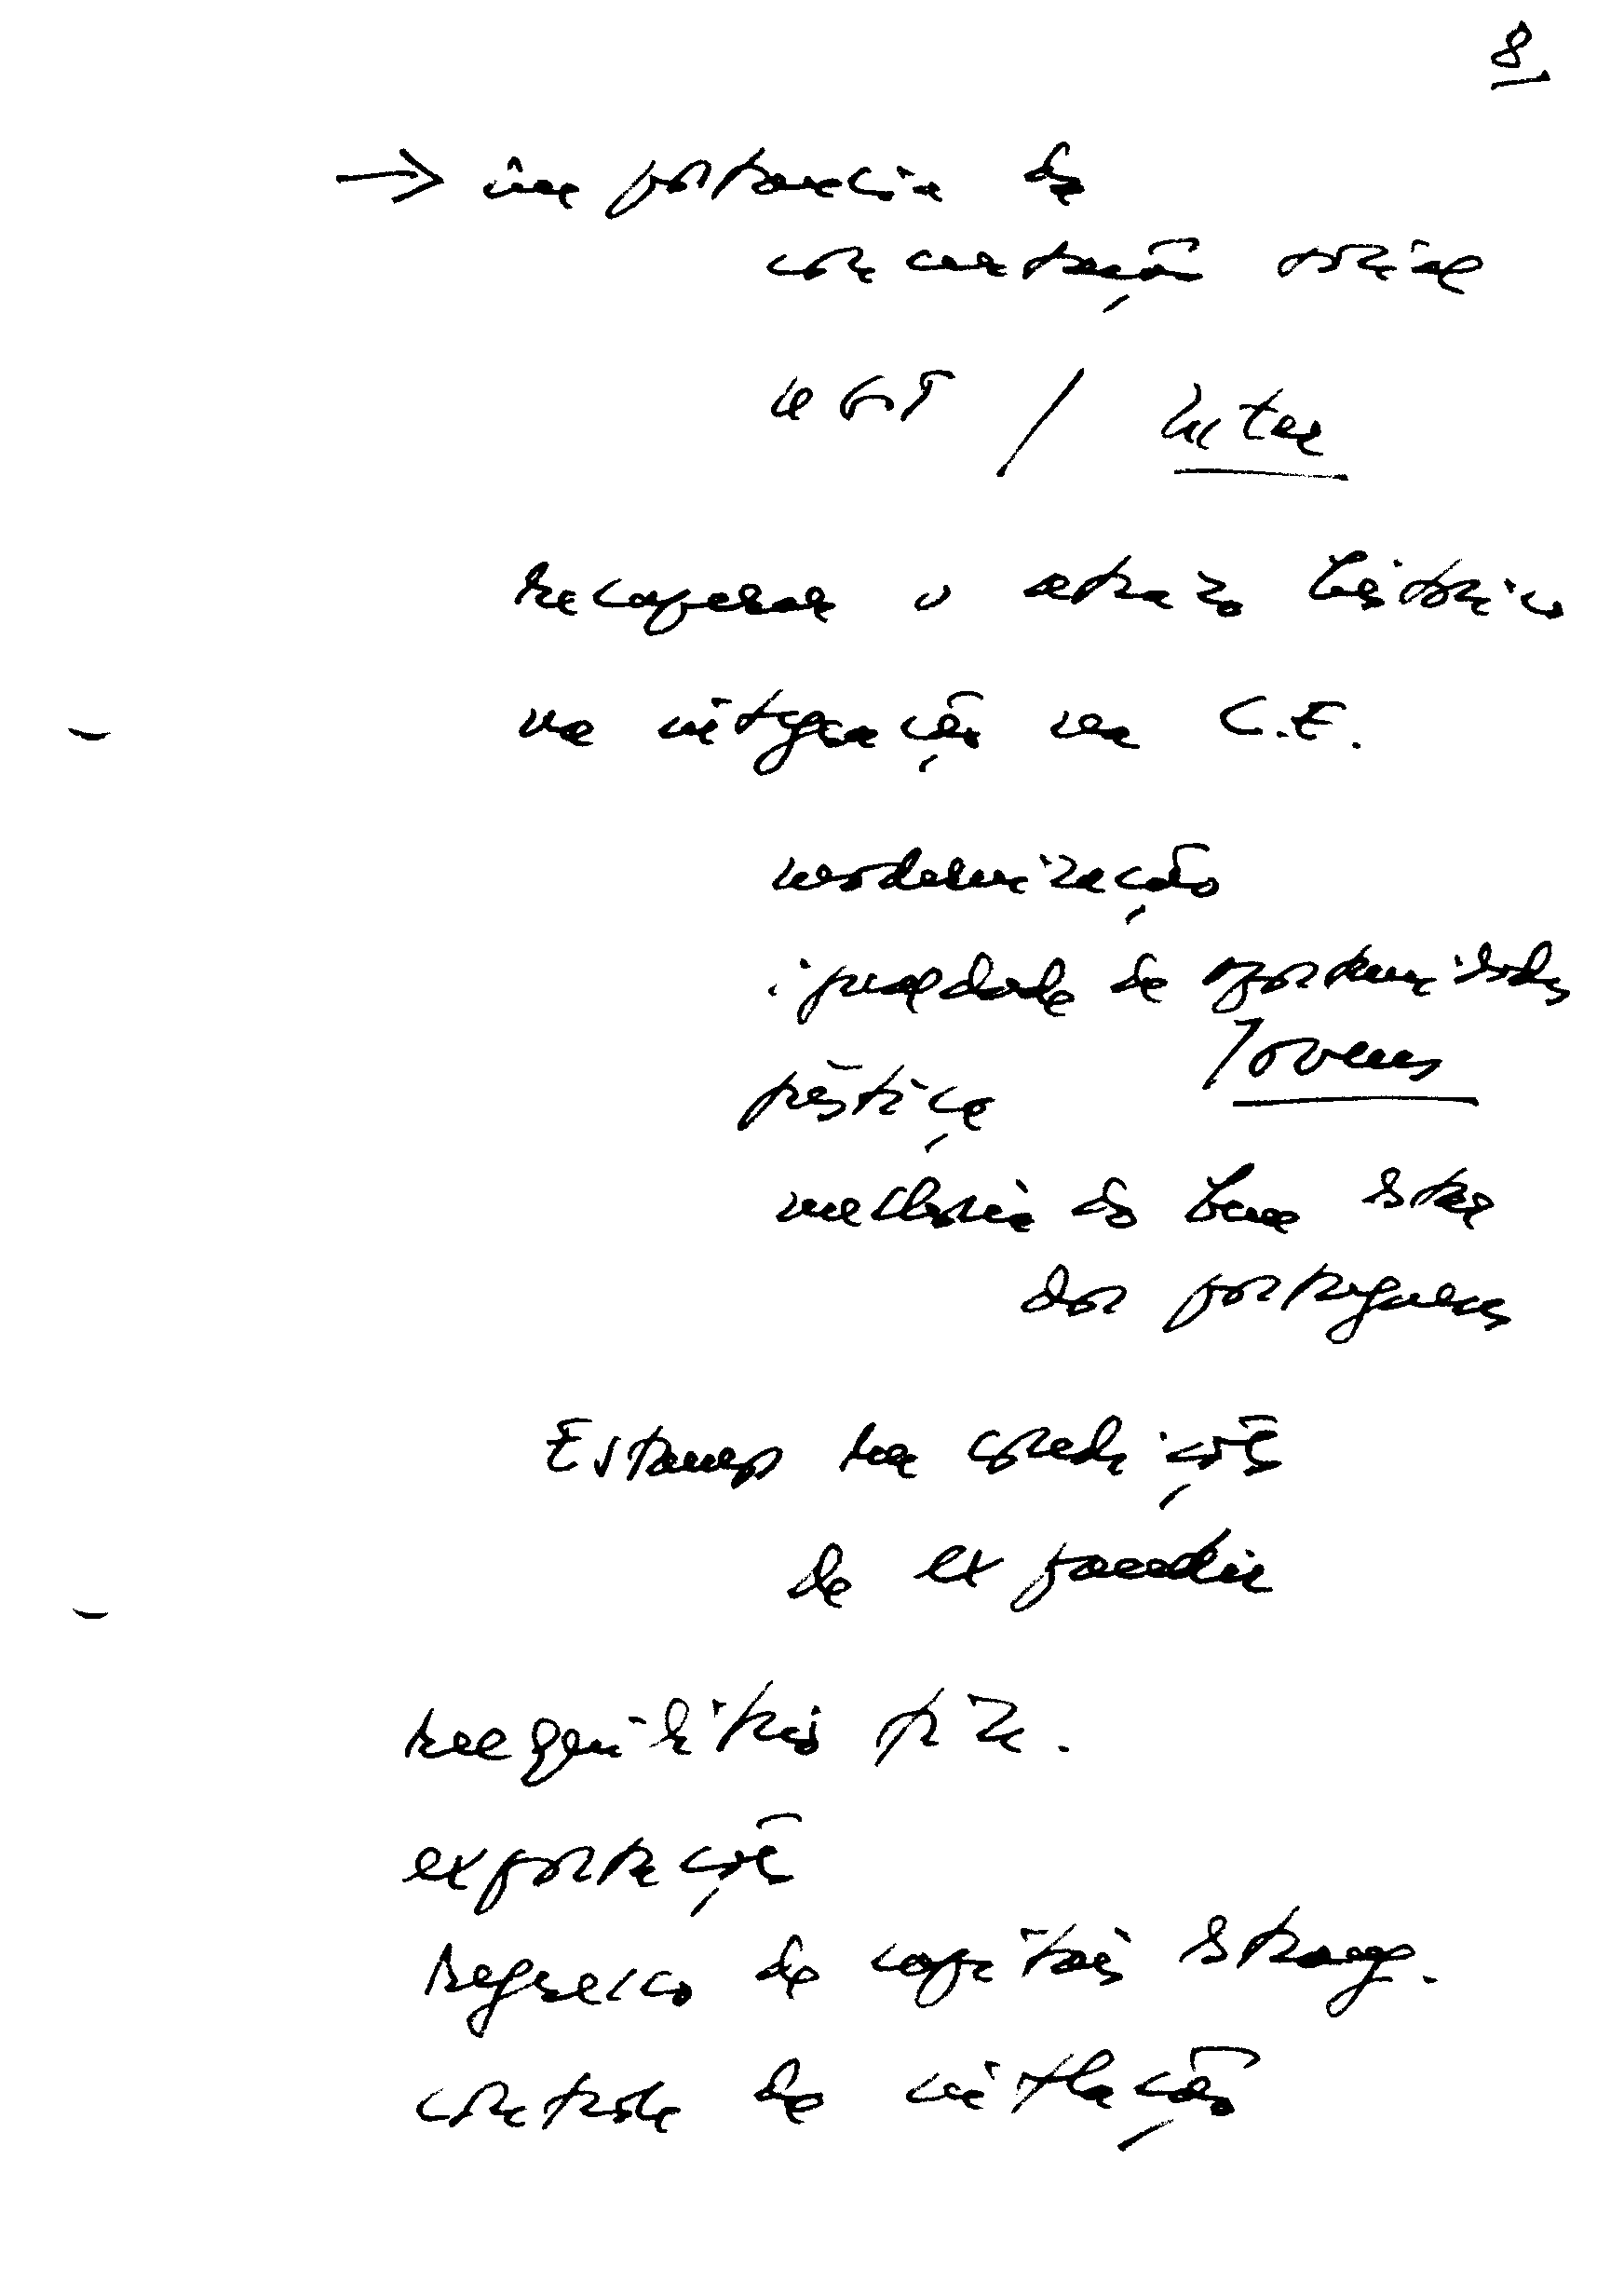 8
→ importância da
concertação social
UGT / Inter
recuperar o atraso histórico
na integração na C.E.
modernização
igualdade de oportunidades
Jovens
justiça
melhoria do bem estar
dos portugueses
Estamos em condições
de expandir
reequilíbrio fin.
exportações
regresso de capitais estrang.
controle da inflação